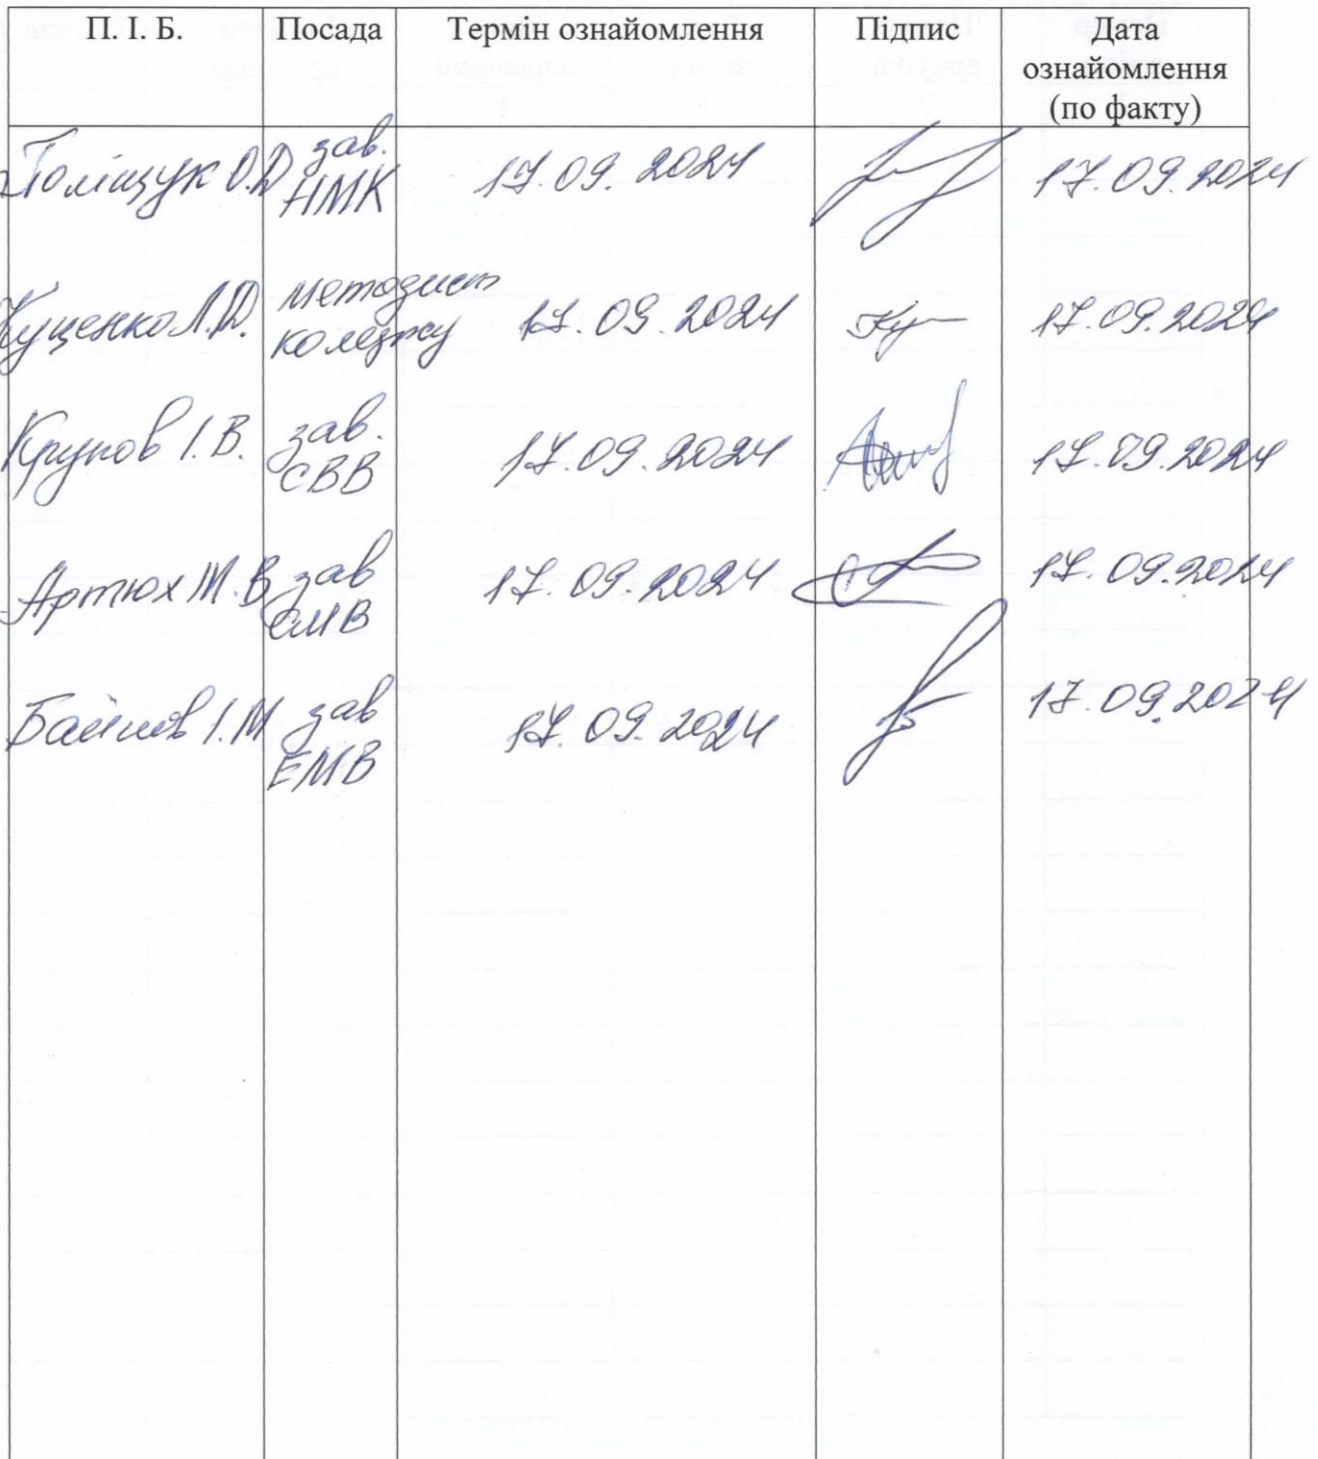 П. І. Б. Посада Термін ознайомлення Підпис Дата
ознайомлення
(по факту)
Поліщук О.Д зав. 17.09.2024 17.09.2024
НМК
Куценко Л.Д. методист 17.09.2024 17.09.2024
коледжу
Крупов І.В. зав. 17.09.2024 17.09.2024
СВВ
Артюх М.В зав 17.09.2024 17.09.2024
ЄМВ
І.М зав 17.09.2024 17.09.2024
ЕМВ